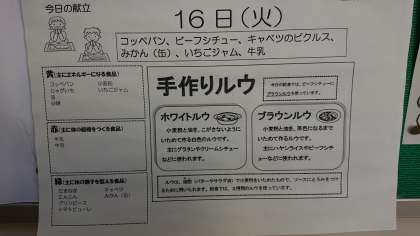 今日の献立
16日(火)
コッペパン、ビーフシチュー、キャベツのピクルス、
みかん(缶)、いちごジャム、牛乳
黄(主にエネルギーになる食品)
コッペパン 小麦粉
じゃがいも いちごジャム
油
砂糖
赤(主に体の組織をつくる食品)
牛肉
牛乳
緑(主に体の調子を整える食品)
たまねぎ キャベツ
にんじん みかん(缶)
グリンピース
トマトピューレ
手作りルウ
今日の給食では、ビーフシチューに
ブラウンルウを使っています。
ホワイトルウ
小麦粉と油を、こがさないように
いためて作る白色のルウです。
主にグラタンやクリームシチュー
などに使われます。
ブラウンルウ
小麦粉と油を、茶色になるまで
いためて作るルウです。
主にハヤシライスやビーフシチ
ューなどに使われます。
ルウは、油脂(バターやサラダ油)で小麦粉をいためたもので、ソースにとろみをつけ
るために用いられます。給食では、2種類のルウを使っています。